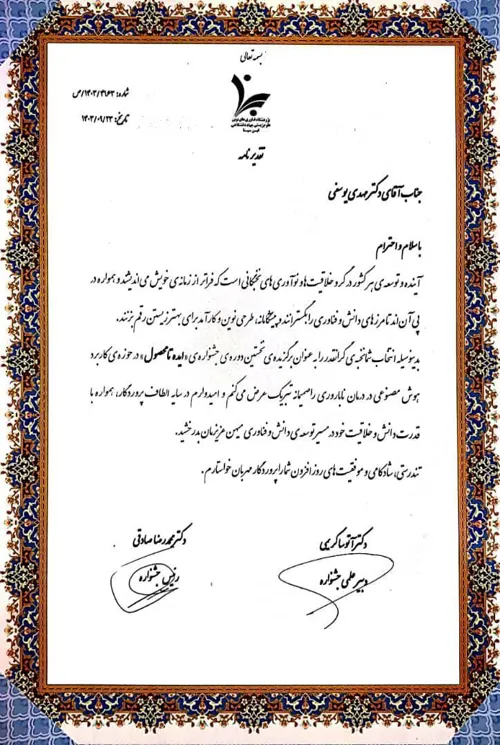 بسمه تعالی
شماره: ۱۴۰۲/۳۱۶۳/ص
تاریخ: ۱۴۰۲/۰۹/۲۲
پژوهشگاه فناوری‌های نوین
علوم زیستی جهاد دانشگاهی
ابن سینا
تقدیرنامه
جناب آقای دکتر مهدی یوسفی
با سلام و احترام
آینده و توسعه‌ی هر کشور در گرو خلاقیت‌ها و نوآوری‌های نخبگانی است که فراتر از زمانه‌ی خویش می‌اندیشند و همواره در
پی آن‌اند تا مرزهای دانش و فناوری را بگسترانند و پیشگامانه، طرحی نوین و کارآمد برای بهتر زیستن رقم بزنند.
بدینوسیله انتخاب شما نخبه‌ی گرانقدر را به عنوان برگزیده‌ی نخستین دوره‌ی جشنواره‌ی «ایده تا محصول» در حوزه‌ی کاربرد
هوش مصنوعی در درمان ناباروری را صمیمانه تبریک عرض می‌کنم و امیدوارم در سایه الطاف پروردگار، همواره با
قدرت دانش و خلاقیت خود در مسیر توسعه‌ی دانش و فناوری میهن عزیزمان بدرخشید.
تندرستی، شادکامی و موفقیت‌های روزافزون شما را از پروردگار مهربان خواستارم.
دکتر آتوسا کریمی
دبیر علمی جشنواره
دکتر محمدرضا صادقی
رئیس جشنواره